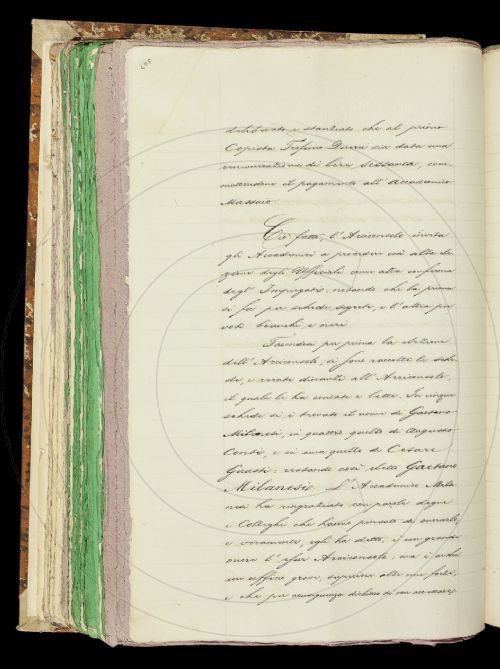 deliberato e stanziato che al primo
Copista Trifone Dazzi sia data una
rimunerazione di Lire Sessanta, com-
mettendone il pagamento all'Accademico
Massaio.
Ciò fatto, l'Arciconsolo invita
gli Accademici a procedere così alla ele-
zione degli Uffiziali come alla conferma
degl'Impiegati; notando che la prima
si fa per schede segrete, e l'altra per
voti bianchi e neri.
Facendosi per prima la elezione
dell'Arciconsolo, si sono raccolte le sche-
de, e recate dinanzi all'Arciconsolo,
il quale le ha contate e lette. In cinque
schede si è trovato il nome di Gaetano
Milanesi, in quattro quello di Augusto
Conti, e in una quello di Cesare
Guasti: restando così eletto Gaetano
Milanesi. L'Accademico Mila-
nesi ha ringraziato con parole degne
i Colleghi che hanno pensato di onorarlo,
e veramente, egli ha detto, è un grande
onore l'esser Arciconsolo, ma è anche
un uffizio grave, superiore alle sue forze,
e che per conseguenza dichiara di non accettare